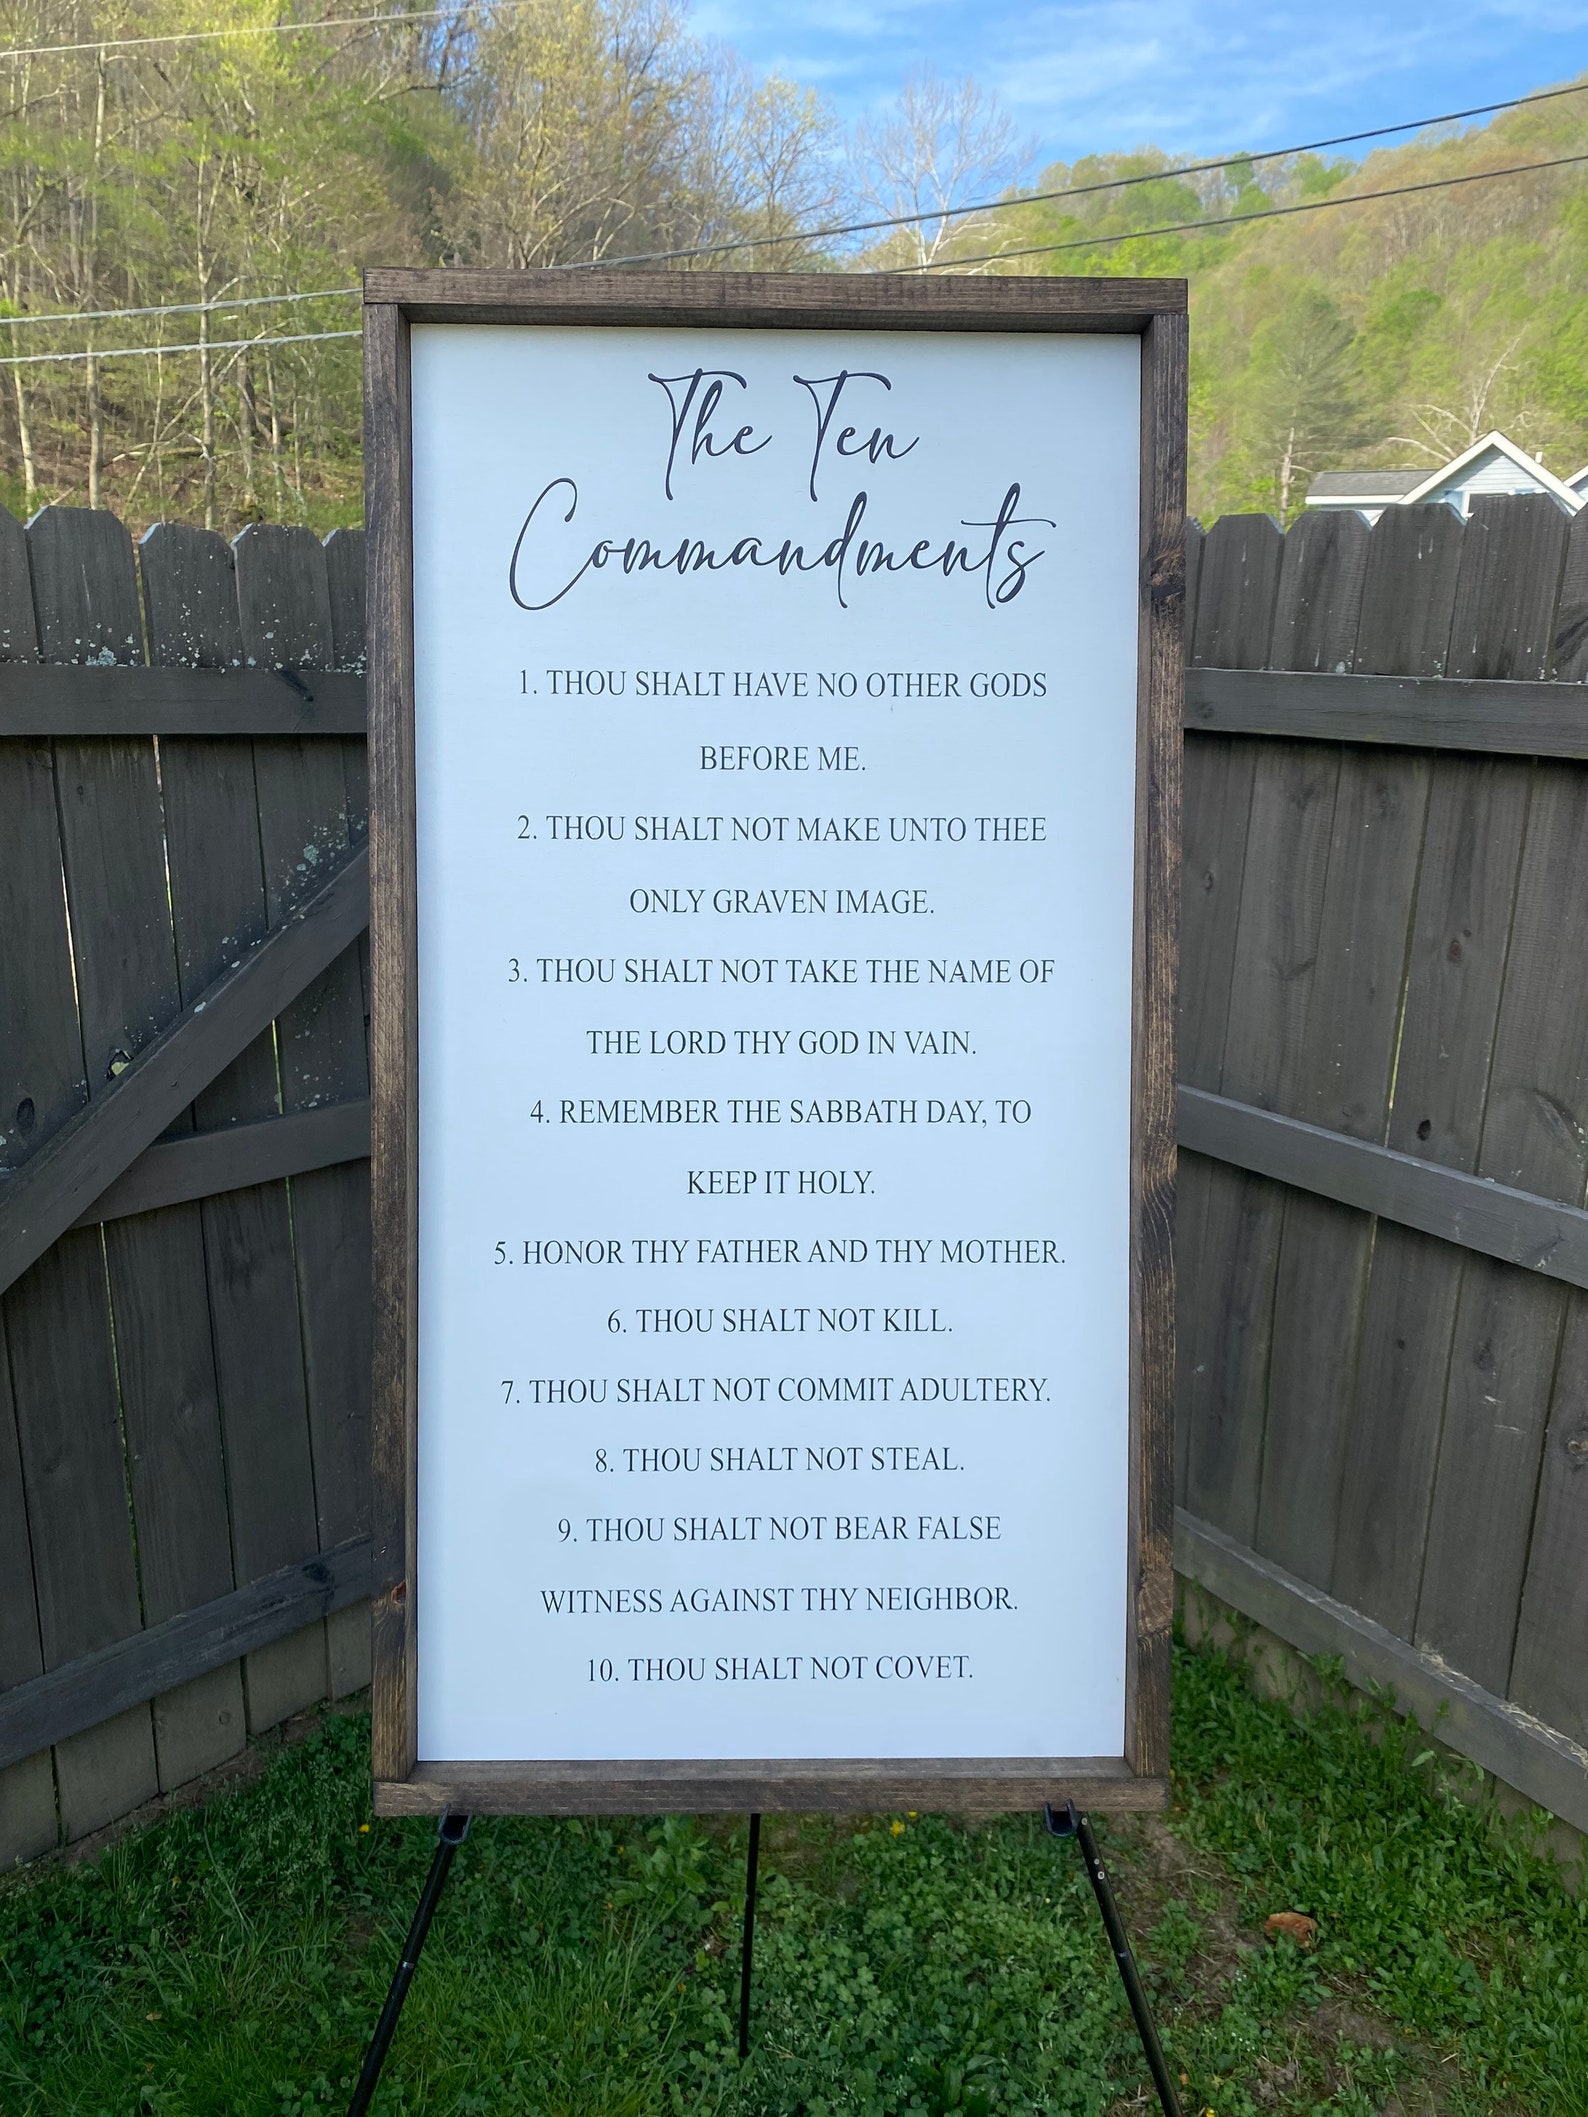 The Ten
Commandments
1. THOU SHALT HAVE NO OTHER GODS
BEFORE ME.
2. THOU SHALT NOT MAKE UNTO THEE
ONLY GRAVEN IMAGE.
3. THOU SHALT NOT TAKE THE NAME OF
THE LORD THY GOD IN VAIN.
4. REMEMBER THE SABBATH DAY, TO
KEEP IT HOLY.
5. HONOR THY FATHER AND THY MOTHER.
6. THOU SHALT NOT KILL.
7. THOU SHALT NOT COMMIT ADULTERY.
8. THOU SHALT NOT STEAL.
9. THOU SHALT NOT BEAR FALSE
WITNESS AGAINST THY NEIGHBOR.
10. THOU SHALT NOT COVET.